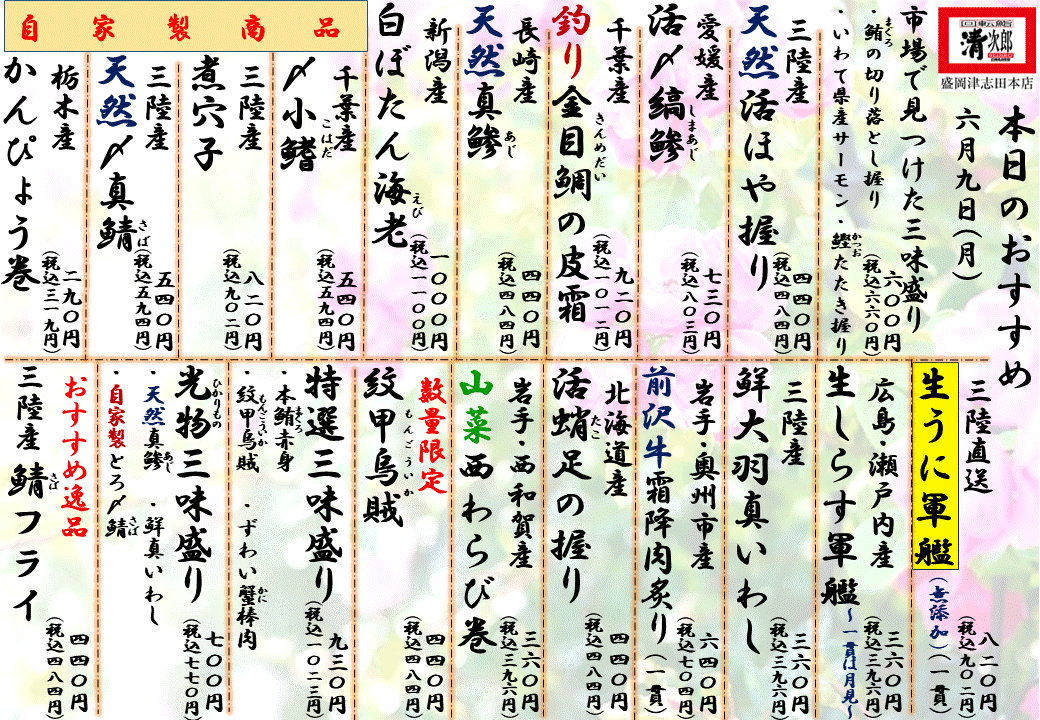 回転鮨
清次郎
盛岡津志田本店
本日のおすすめ
六月九日(月)
市場で見つけた三味盛り
・鮪の切り落とし握り
まぐろ
六〇〇円
(税込六六〇円)
・いわて県産サーモン・鰹たたき握り
かつお
三陸産
天然活ほや握り
四四〇円
(税込四八四円)
愛媛産
活〆縞鯵
しまあじ
七三〇円
(税込八〇三円)
千葉産
釣り金目鯛の皮霜
きんめだい
九二〇円
(税込一〇一二円)
長崎産
天然真鯵
あじ
四四〇円
(税込四八四円)
新潟産
白ぼたん海老
えび
一〇〇〇円
(税込一一〇〇円)
自家製商品
千葉産
〆小鰭
こはだ
五四〇円
(税込五九四円)
三陸産
煮穴子
八二〇円
(税込九〇二円)
三陸産
天然〆真鯖
さば
五四〇円
(税込五九四円)
栃木産
かんぴょう巻
二九〇円
(税込三一九円)
三陸直送
生うに軍艦
(無添加)(一貫)
八二〇円
(税込九〇二円)
広島・瀬戸内産
生しらす軍艦
~一貫は月見~
三六〇円
(税込三九六円)
三陸産
鮮大羽真いわし
三六〇円
(税込三九六円)
岩手・奥州市産
前沢牛霜降肉炙り(一貫)
六四〇円
(税込七〇四円)
北海道産
活蛸足の握り
たこ
四四〇円
(税込四八四円)
岩手・西和賀産
山菜西わらび巻
三六〇円
(税込三九六円)
数量限定
紋甲烏賊
もんごういか
四四〇円
(税込四八四円)
特選三味盛り
九三〇円
(税込一〇二三円)
・本鮪赤身
まぐろ
・紋甲烏賊
もんごういか
・ずわい蟹棒肉
かに
光物三味盛り
ひかりもの
七〇〇円
(税込七七〇円)
・天然真鯵
あじ
・鮮真いわし
・自家製とろ〆鯖
さば
おすすめ逸品
三陸産 鯖フライ
さば
四四〇円
(税込四八四円)